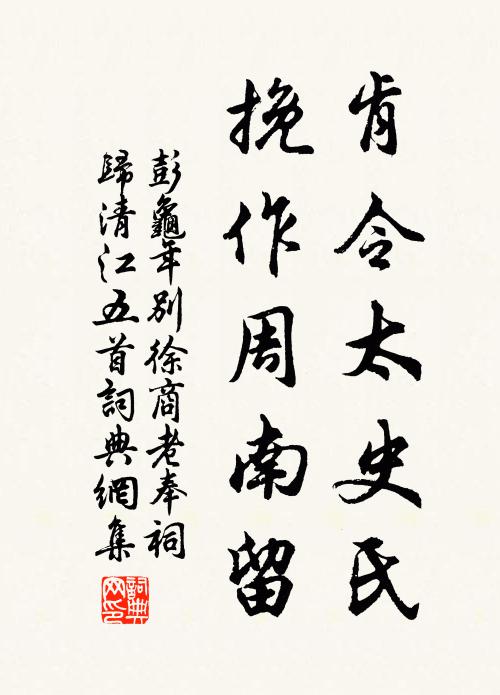 肯令太史氏
挽作周南留
彭龜年別徐商老奉祠
歸清江五首詞典網集
詞典
网印